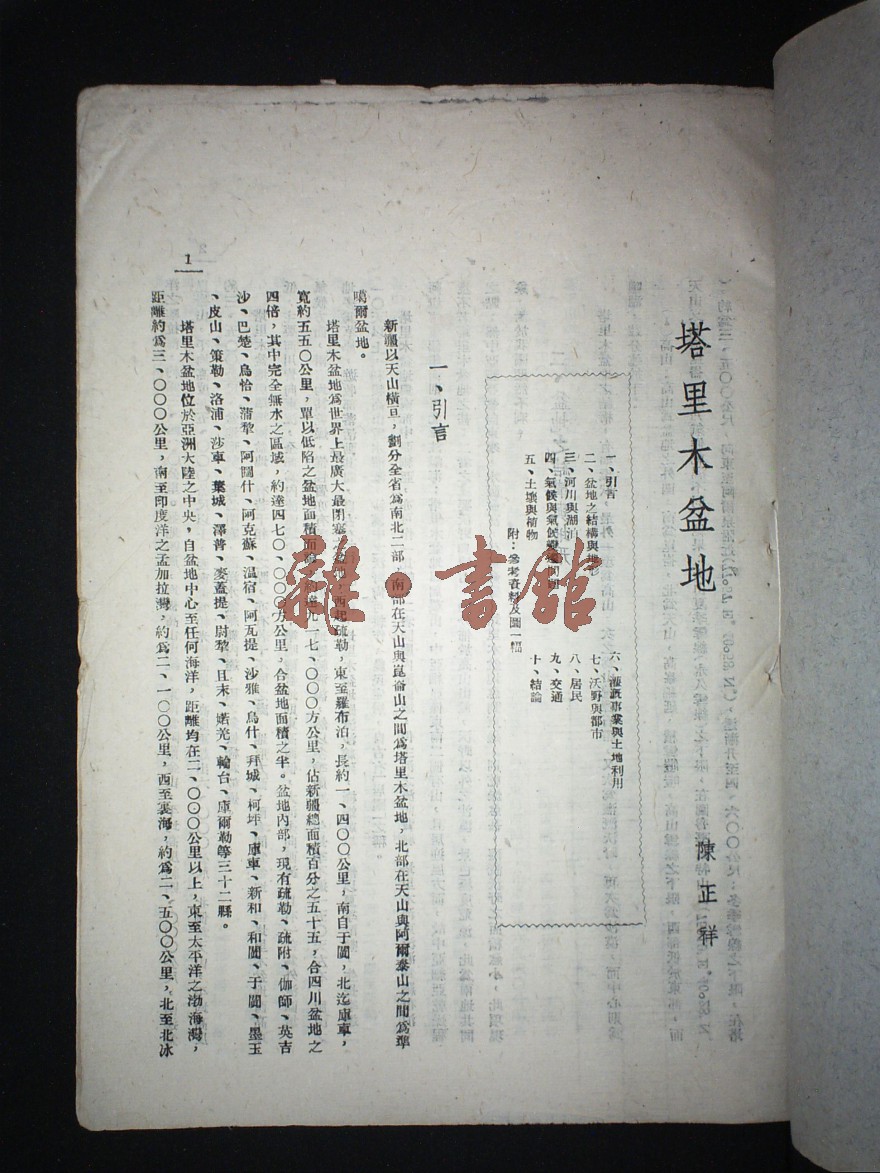 塔里木盆地
陳正祥
一、引言
二、盆地之結構與地形
三、河川與湖泊
四、氣候與氣候變遷問題
五、土壤與植物
六、灌溉事業與土地利用
七、沃野與都市
八、居民
九、交通
十、結論
附：參考資料及圖一幅
一、引言
新疆以天山橫亘，劃分全省爲南北二部，南部在天山與崑崙山之間爲塔里木盆地，北部在天山與阿爾泰山之間爲準
噶爾盆地。
塔里木盆地爲世界上最廣大最閉塞之盆地，西起疏勒，東至羅布泊，長約一、四〇〇公里，南自于闐，北迄庫車，
寬約五五〇公里，單以低陷之盆地面積而論，約達九一七、〇〇〇方公里，佔新疆總面積百分之五十五，合四川盆地之
四倍，其中完全無水之區域，約達四七〇、〇〇〇方公里，合盆地面積之半。盆地內部，現有疏勒、疏附、伽師、英吉
沙、巴楚、烏恰、蒲犂、阿圖什、阿克蘇、溫宿、阿瓦提、沙雅、烏什、拜城、柯坪、庫車、新和、和闐、于闐、墨玉
、皮山、策勒、洛浦、莎車、葉城、澤普、麥蓋提、尉犂、且末、婼羌、輪台、庫爾勒等三十二縣。
塔里木盆地位於亞洲大陸之中央，自盆地中心至任何海洋，距離均在二、〇〇〇公里以上，東至太平洋之渤海灣，
距離約爲三、〇〇〇公里，南至印度洋之孟加拉灣，約爲二、一〇〇公里，西至裏海，約爲二、五〇〇公里，北至北冰
1
雜·書館